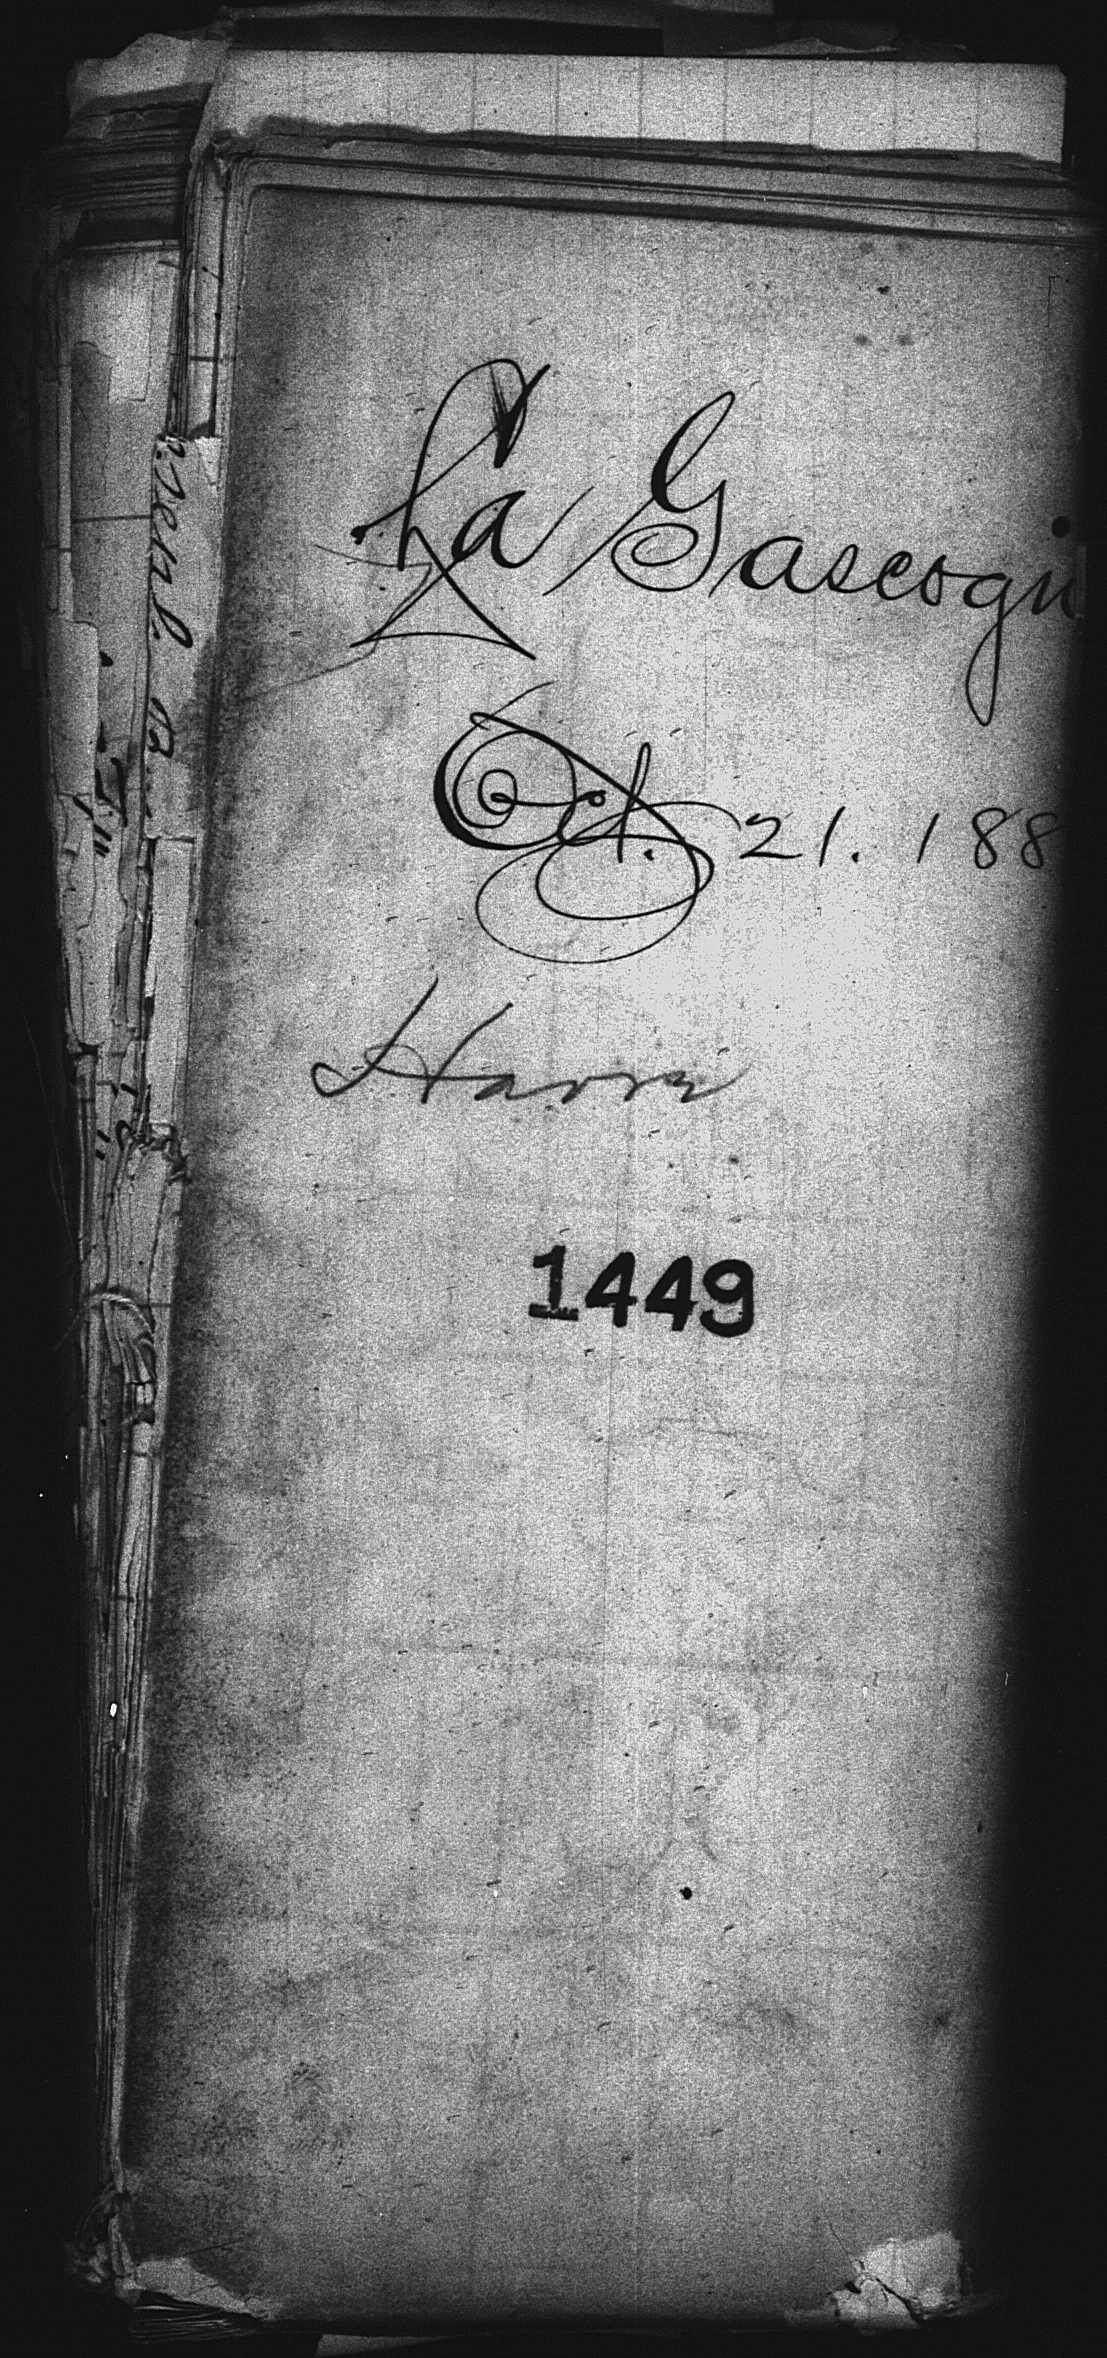 La Gascogn
Oct. 21. 188
Havre
1449